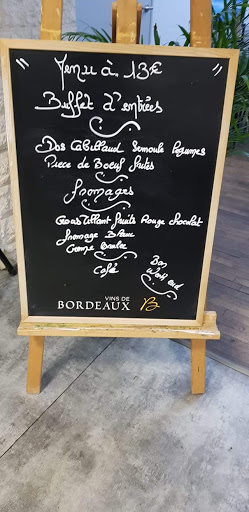 Menu à 13€
Buffet d'entrées
Dos Cabillaud Semoule Légumes
Piece de Boeuf frites
fromages
fruits Rouge chocolat
fromage Blanc
Creme Brulee
Café
Bon
Week end
VINS DE
BORDEAUX B